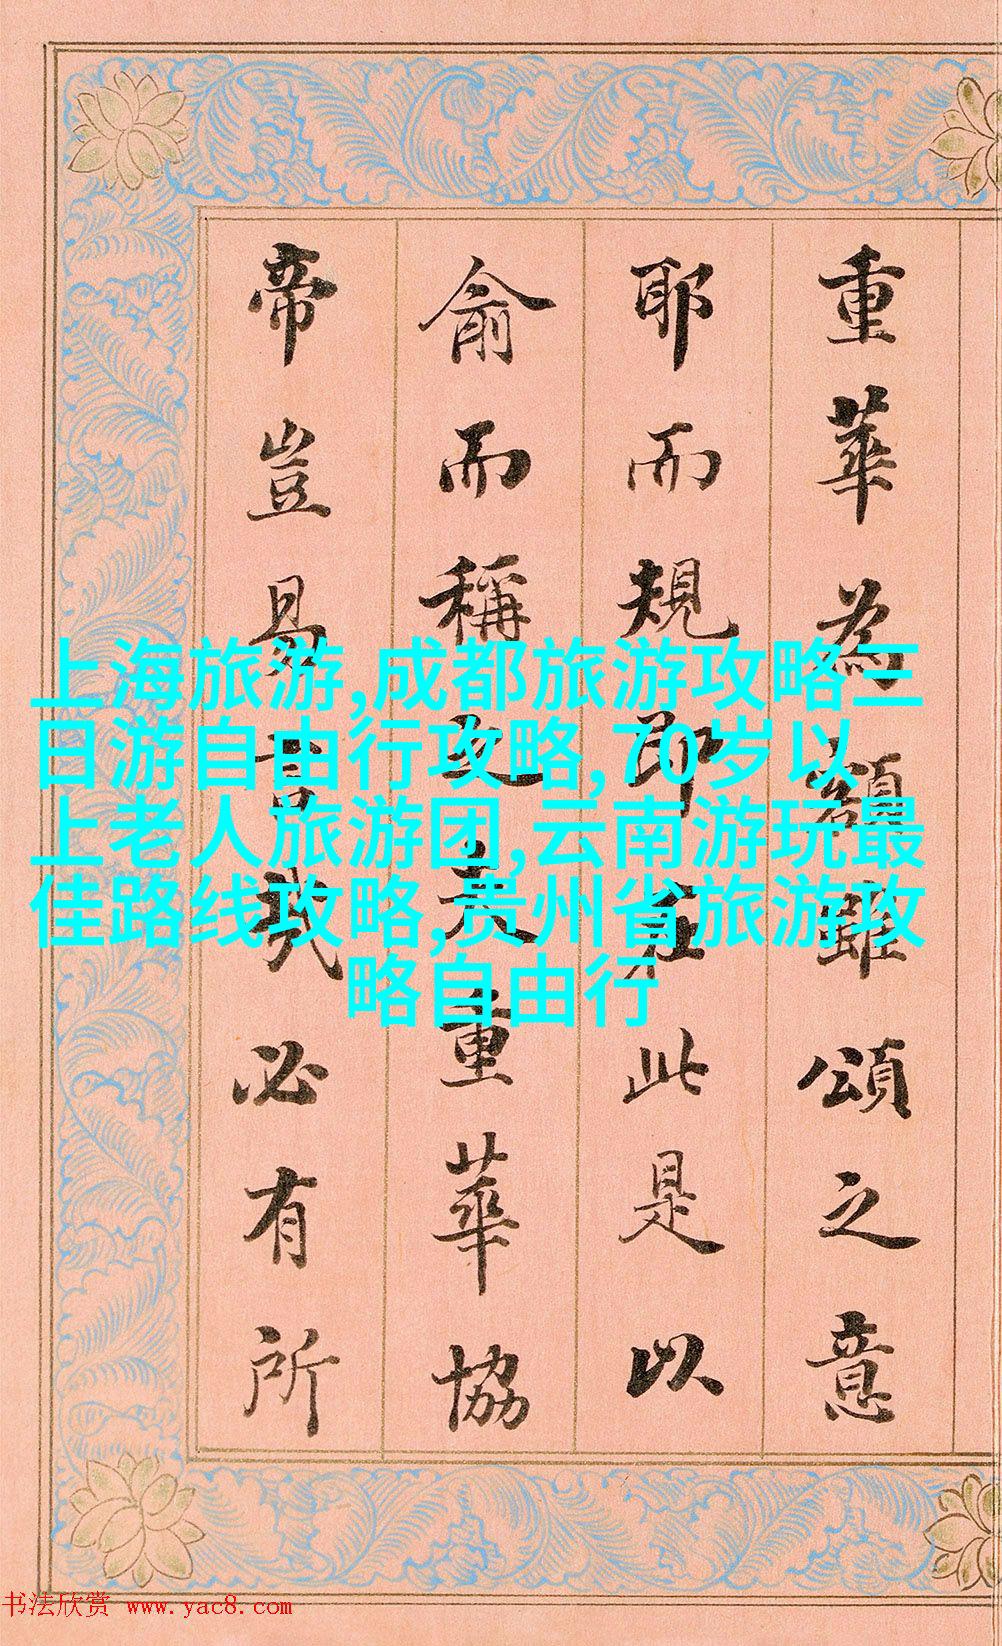 重華為額雖頌之意
耶而規即在此是以
俞而稱夫重華協
帝豈易言哉必有所
上海旅游,成都旅游攻略三
日游自由行攻略,70岁以
上老人旅游团,云南游玩最
佳路线攻略,贵州省旅游攻
略自由行
书法欣赏 www.yac8.com